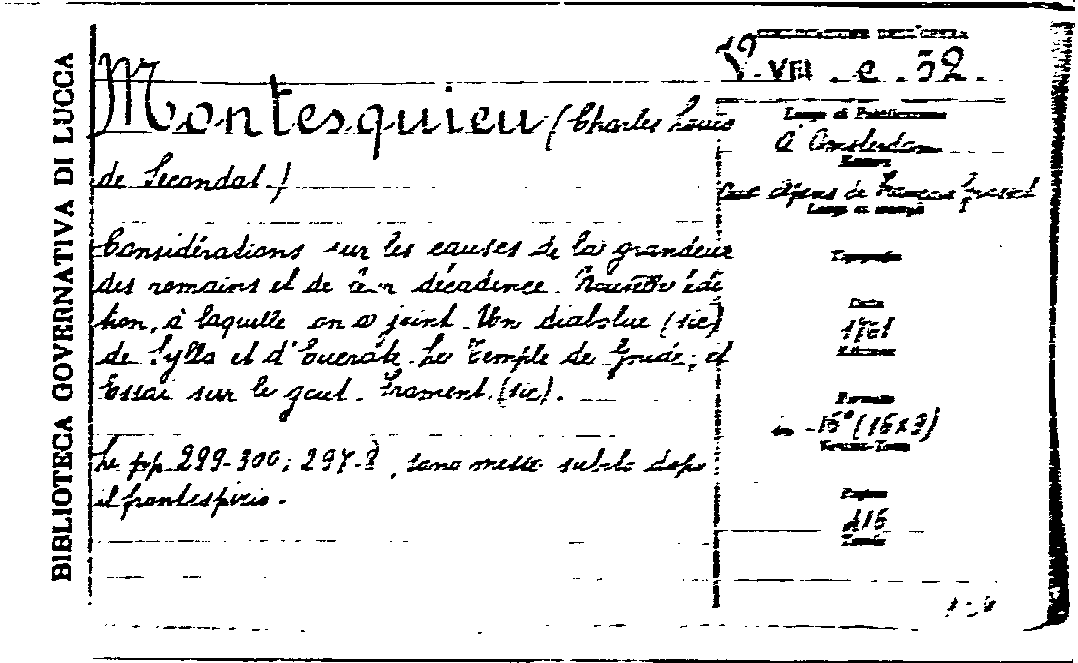 BIBLIOTECA GOVERNATIVA DI LUCCA
COLLOCAZIONE DELL'OPERA
VIII . e . 32.
Montesquieu (Charles Louis
de Secondat.)
Considérations sur les causes de la grandeur
des romains et de leur décadence. Nouvelle édi
tion, à laquelle on a joint. Un dialolue (sic)
de Sylla et d'Eucrate. Le Temple de Gnide; et
Essai sur le gout. Frament. (sic).
Le pp. 299-300; 297-8, sono messe subito dopo
il frontespizio.
Luogo di Pubblicazione
à Amsterdam
Editore
Luogo di stampa
Tipografia
Data
1761
Formato
in -16° (16x9)
Pagine